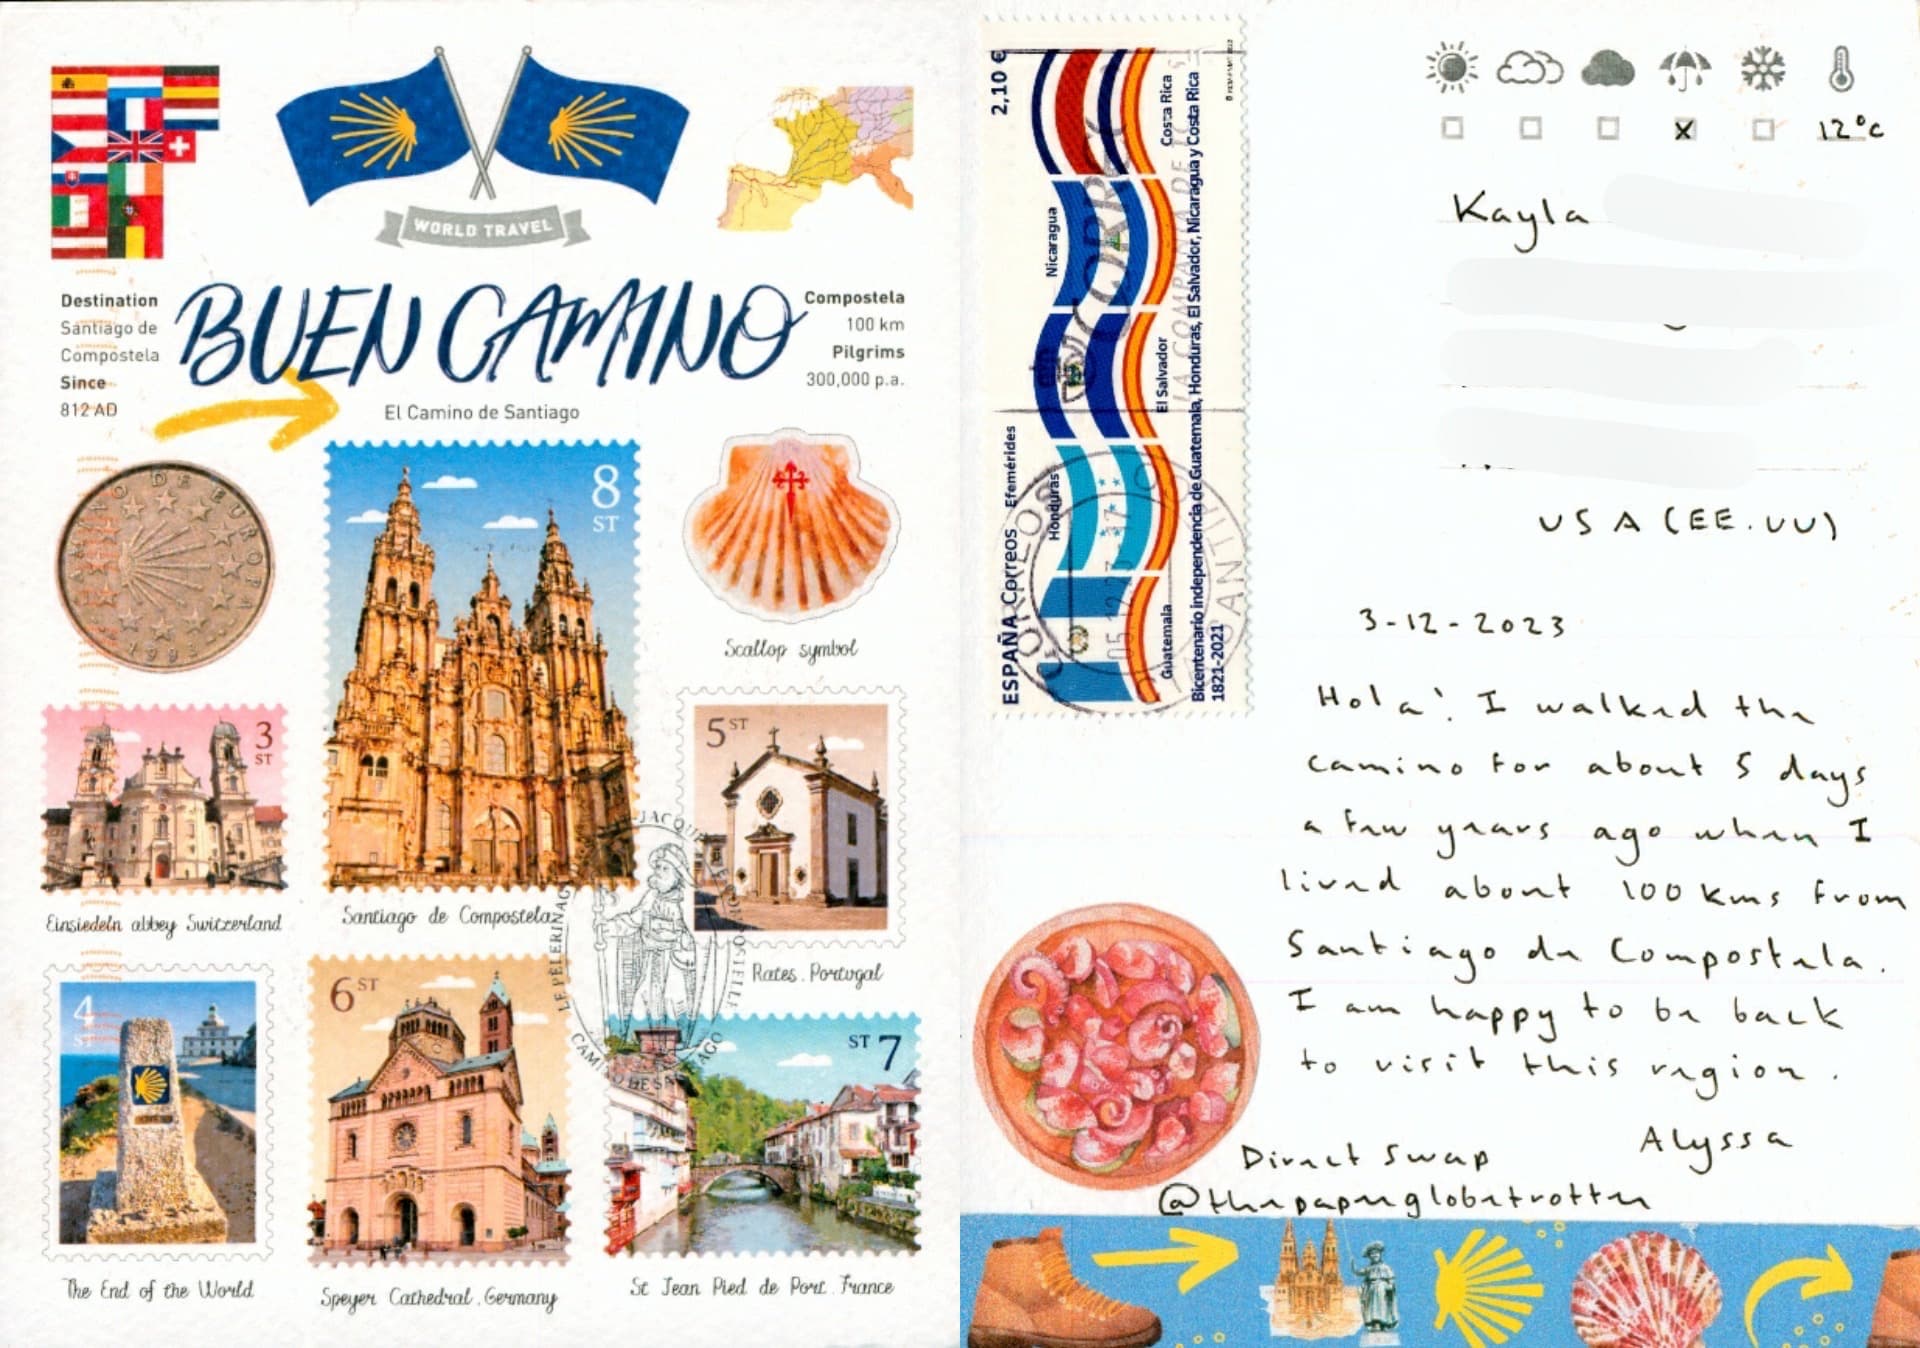 WORLD TRAVEL
Destination
Santiago de
Compostela
Since
812 AD
BUEN CAMINO
El Camino de Santiago
Compostela
100 km
Pilgrims
300,000 p.a.
CAMINO DE EUROPA
1993
8
ST
Scallop symbol
3
ST
Einsiedeln abbey Switzerland
Santiago de Compostela
5 ST
Rates, Portugal
4
ST
The End of the World
6 ST
Speyer Cathedral, Germany
ST 7
St Jean Pied de Port, France
JACQU
LE PÈLERINAG
CAMINO DE SANTIAGO
2,10 €
ESPAÑA Correos Efemérides
Costa Rica
Nicaragua
El Salvador
Honduras
Guatemala
Bicentenario independencia de Guatemala, Honduras, El Salvador, Nicaragua y Costa Rica
1821-2021
CORREOS
CORREOS
LA COMPAÑIA DE
05.12.23 17
SANTI
12°C
Kayla
USA (EE.UU)
3-12-2023
Hola! I walked the
camino for about 5 days
a few years ago when I
lived about 100 kms from
Santiago de Compostela.
I am happy to be back
to visit this region.
Alyssa
Direct Swap
@thepaperglobetrotter